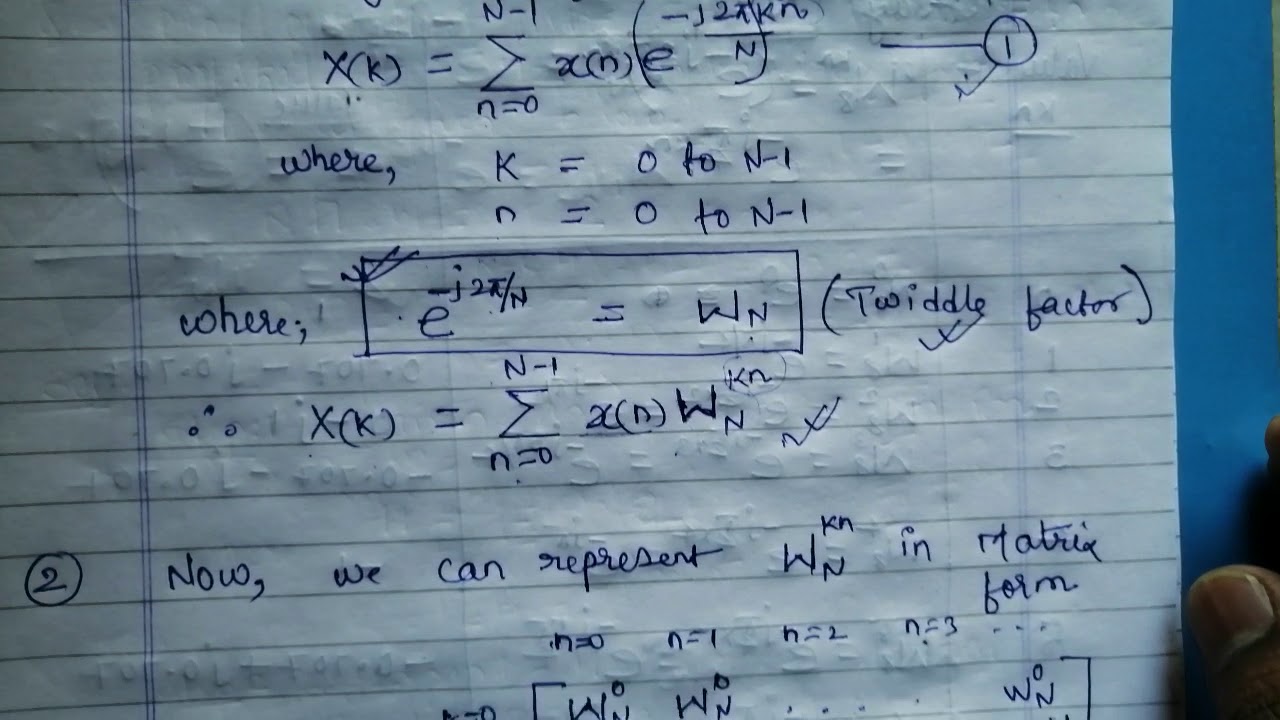 X(k) = N-1 ∑ n=0 x(n) (e^(-j2πkn/N)) — ①
where, k = 0 to N-1
n = 0 to N-1
where; e^(-j2π/N) = W_N (Twiddle factor)
∴ X(k) = N-1 ∑ n=0 x(n) W_N^kn
② Now, we can represent W_N^kn in Matrix
form
n=0 n=1 n=2 n=3 ...
k=0 [ W_N^0 W_N^0 . . . . W_N^0 ]